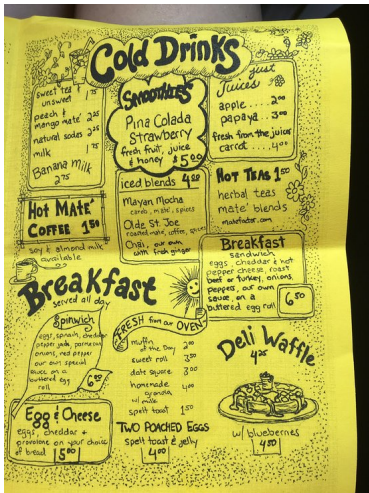 Cold Drinks
sweet tea &
unsweet 1 75
peach &
mango mate' 2 25
natural sodas 2 25
milk 1 75
Banana Milk
2 75
SMOOTHIES
Pina Colada
Strawberry
fresh fruit, juice
& honey $5 00
just
Juices
apple .... 2 00
papaya .. 3 00
fresh from the juicer
carrot .... 4 00
iced blends 4 00
Mayan Mocha
carob, mate', spices
Olde St. Joe
roasted mate, coffee, spices
Chai, our own
with fresh ginger
HOT TEAS 1 50
herbal teas
mate' blends
matefactor.com
HOT MATE'
COFFEE 1 50
soy & almond milk
available
Breakfast
served all day
Breakfast
sandwich
eggs, cheddar & hot
pepper cheese, roast
beef or turkey, onions,
peppers, our own
sauce, on a
buttered egg roll
6 50
Spinwich
eggs, spinach, cheddar
pepper jack, parmesan
onions, red pepper
our own special
sauce on a
buttered egg
roll
6 50
FRESH from our OVEN
muffin
of the Day 2 00
sweet roll 3 50
date square 3 00
homemade 4 00
granola
w/ milk
spelt toast 1 50
TWO POACHED EGGS
spelt toast & jelly
4 00
Deli Waffle
4 25
w/ blueberries
4 50
Egg & Cheese
eggs, cheddar +
provolone on your choice
of bread 5 00